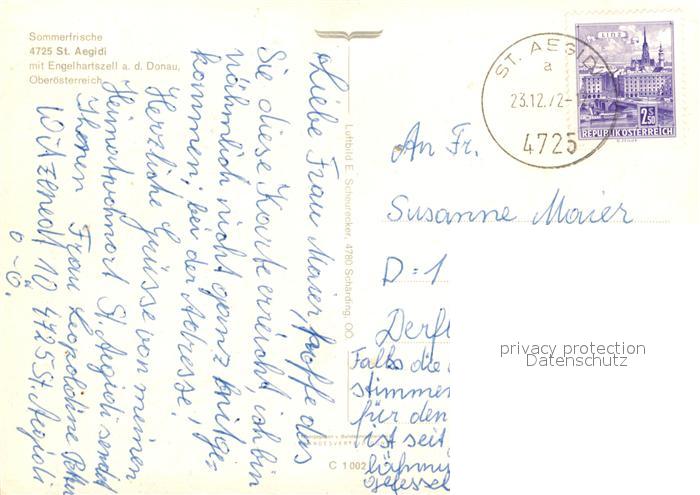 Sommerfrische
4725 St. Aegidi
mit Engelhartszell a. d. Donau,
Oberösterreich
Liebe Frau Maier, hoffe das
Sie diese Karte erreicht, ich bin
nähmlich nicht ganz mitge-
kommen, bei der Adresse!
Herzliche Grüsse von meinen
Heimatwohnort St. Aegidi sendet
Ihnen Frau Leopoldine
Witzenedt 10 4725 St. Aegidi
O-Ö.
Luftbild E. Scheurecker, 4780 Schärding, OÖ.
C 1002
LINZ
2.50
S
REPUBLIK ÖSTERREICH
ST. AEGIDI
a
23.12.72-1
4725
An Fr.
Susanne Maier
D=1
Derfl
Falls die
stimmen
für den
ist seit
lähmu
gefessel
privacy protection
Datenschutz